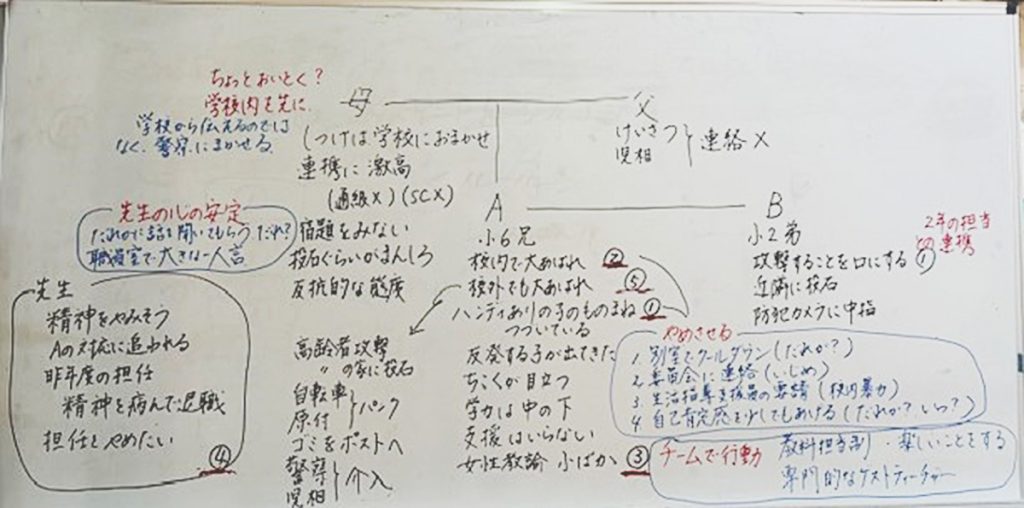 ちょっとおいとく?
学校内を先に.
学校から伝えるのでは
なく、警察にまかせる.
母
父
しつけは学校におまかせ
連携に激高
(通級×)(SC×)
宿題をみない
投石ぐらいがまんしろ
反抗的な態度
けいさつ
児相
連絡×
先生の心の安定
だれかに話を聞いてもらう だれ?
職員室で大きな一人言
先生
精神をやみそう
Aの対応に追われる
昨年度の担任
精神を病んで退職
担任をやめたい
④
A
小6兄
校内で大あばれ ②
校外でも大あばれ ⑤
ハンディありの子のものまね ①
つづいている
反発する子が出てきた
ちこくが目立つ
学力は中の下
支援はいらない
女性教諭 小ばか ③
高齢者攻撃
〃の家に投石
自転車
原付
パンク
ゴミをポストへ
警察
児相
介入
B
小2弟
攻撃することを口にする ①
近隣に投石
防犯カメラに中指
2年の担当
との連携
やめさせる
1. 別室でクールダウン(だれが?)
2 委員会に連絡(いじめ)
3 生活指導支援員の要請(校内暴力)
4 自己肯定感を少してもあげる(だれが?いつ?)
チームで行動
教科担当制・楽しいことをする
専門的なゲストティーチャー